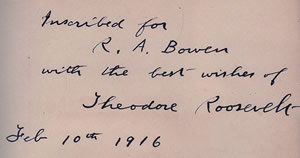 Inscribed for
R. A. Bowen
with the best wishes of
Theodore Roosevelt
Feb 10th 1916